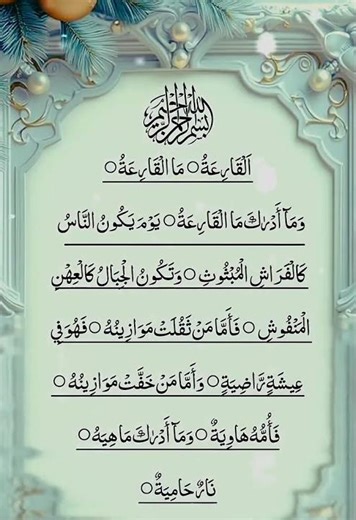 بسم الله الرحمن الرحيم
اَلْقَارِعَةُ ○ مَا الْقَارِعَةُ ○
وَمَآ أَدْرٰىكَ مَا الْقَارِعَةُ ○ يَوْمَ يَكُونُ النَّاسُ
كَالْفَرَاشِ الْمَبْثُوثِ ○ وَتَكُونُ الْجِبَالُ كَالْعِهْنِ
الْمَنْفُوشِ ○ فَأَمَّا مَنْ ثَقُلَتْ مَوَازِينُهُ ○ فَهُوَ فِي
عِيشَةٍ رَّاضِيَةٍ ○ وَأَمَّا مَنْ خَفَّتْ مَوَازِينُهُ ○
فَأُمُّهُ هَاوِيَةٌ ○ وَمَآ أَدْرٰىكَ مَاهِيَهْ ○
نَارٌ حَامِيَةٌ ○